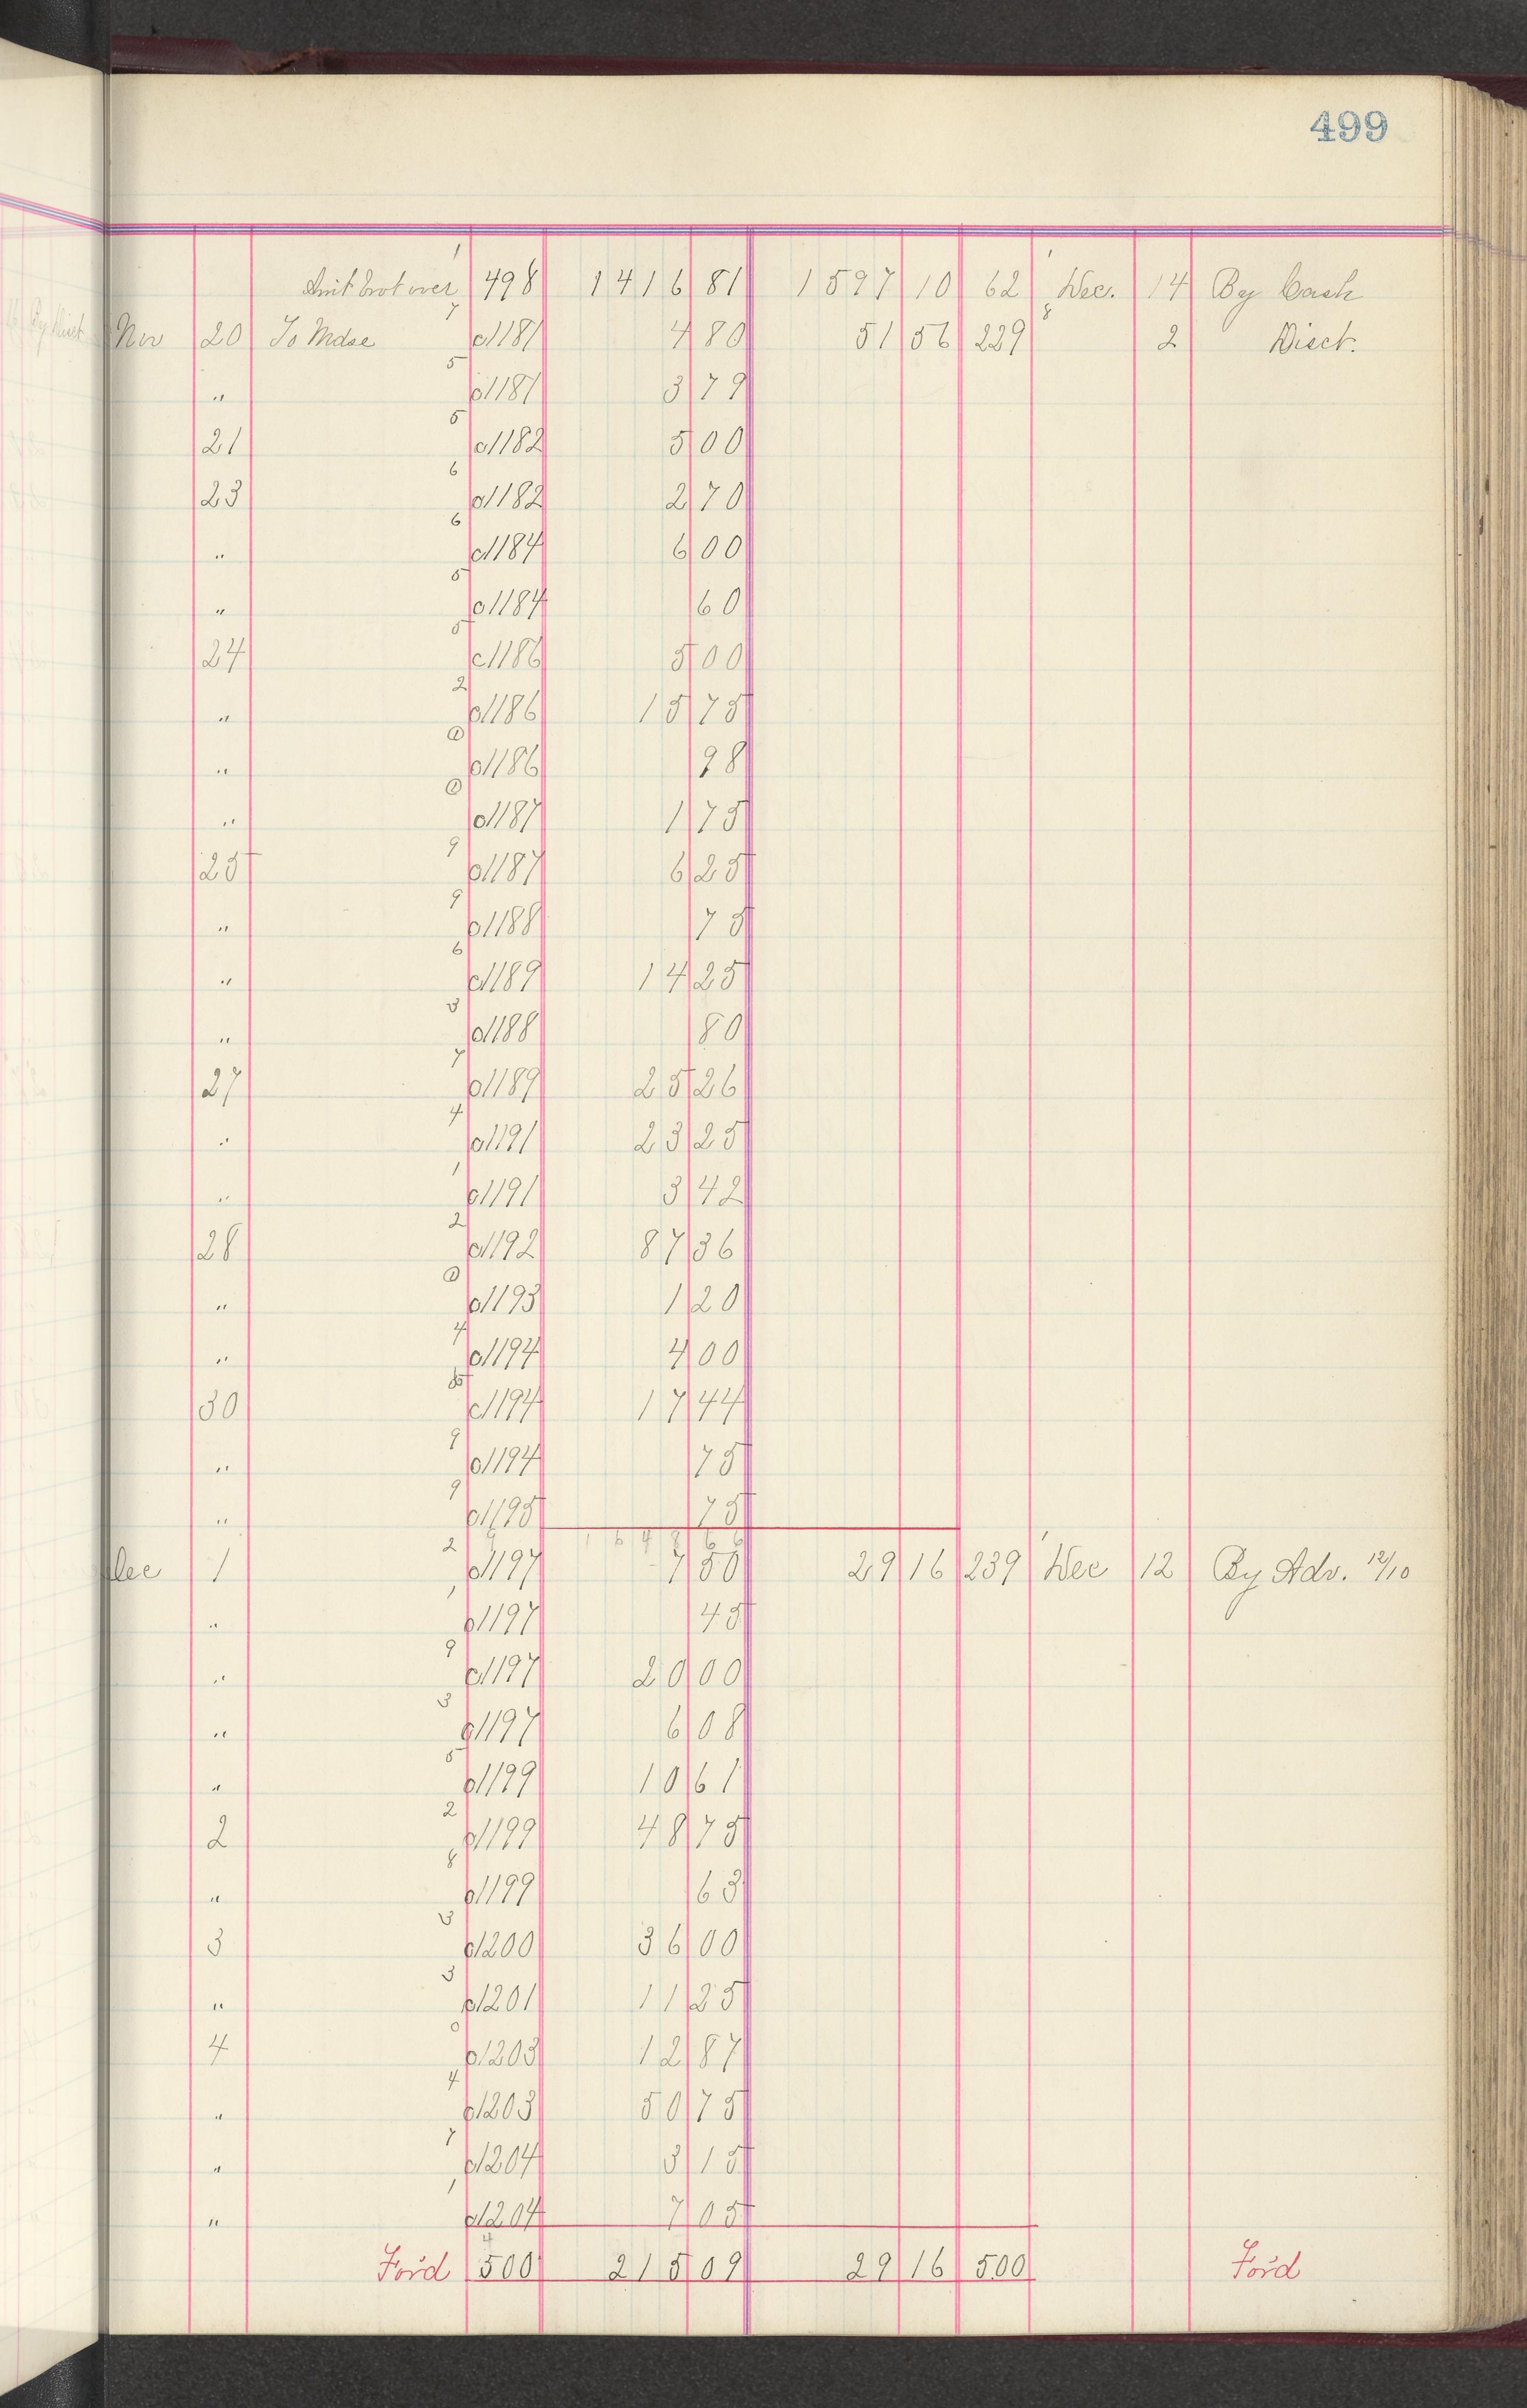 499
Amt Brot over 498 1416 81 1597 10 62 Dec. 14 By Cash
Nov 20 To Mdse c1181 4 80 51 56 229 2 Disct.
" c1181 3 79
21 c1182 5 00
23 c1182 2 70
" c1184 6 00
" c1184 60
24 c1186 5 00
" c1186 15 75
" c1186 98
" c1187 1 75
25 c1187 6 25
" c1188 75
" c1189 14 25
" c1188 80
27 c1189 25 26
" c1191 23 25
" c1191 3 42
28 c1192 87 36
" c1193 1 20
" c1194 4 00
30 c1194 17 44
" c1194 75
" c1195 75
Dec 1 c1197 7 50 29 16 239 Dec 12 By Adv. 12/10
" c1197 45
" c1197 20 00
" c1197 6 08
" c1199 10 61
2 c1199 48 75
" c1199 63
3 c1200 36 00
" c1201 11 25
4 c1203 12 87
" c1203 50 75
" c1204 3 15
" c1204 7 05
For'd 500 215 09 29 16 500 For'd